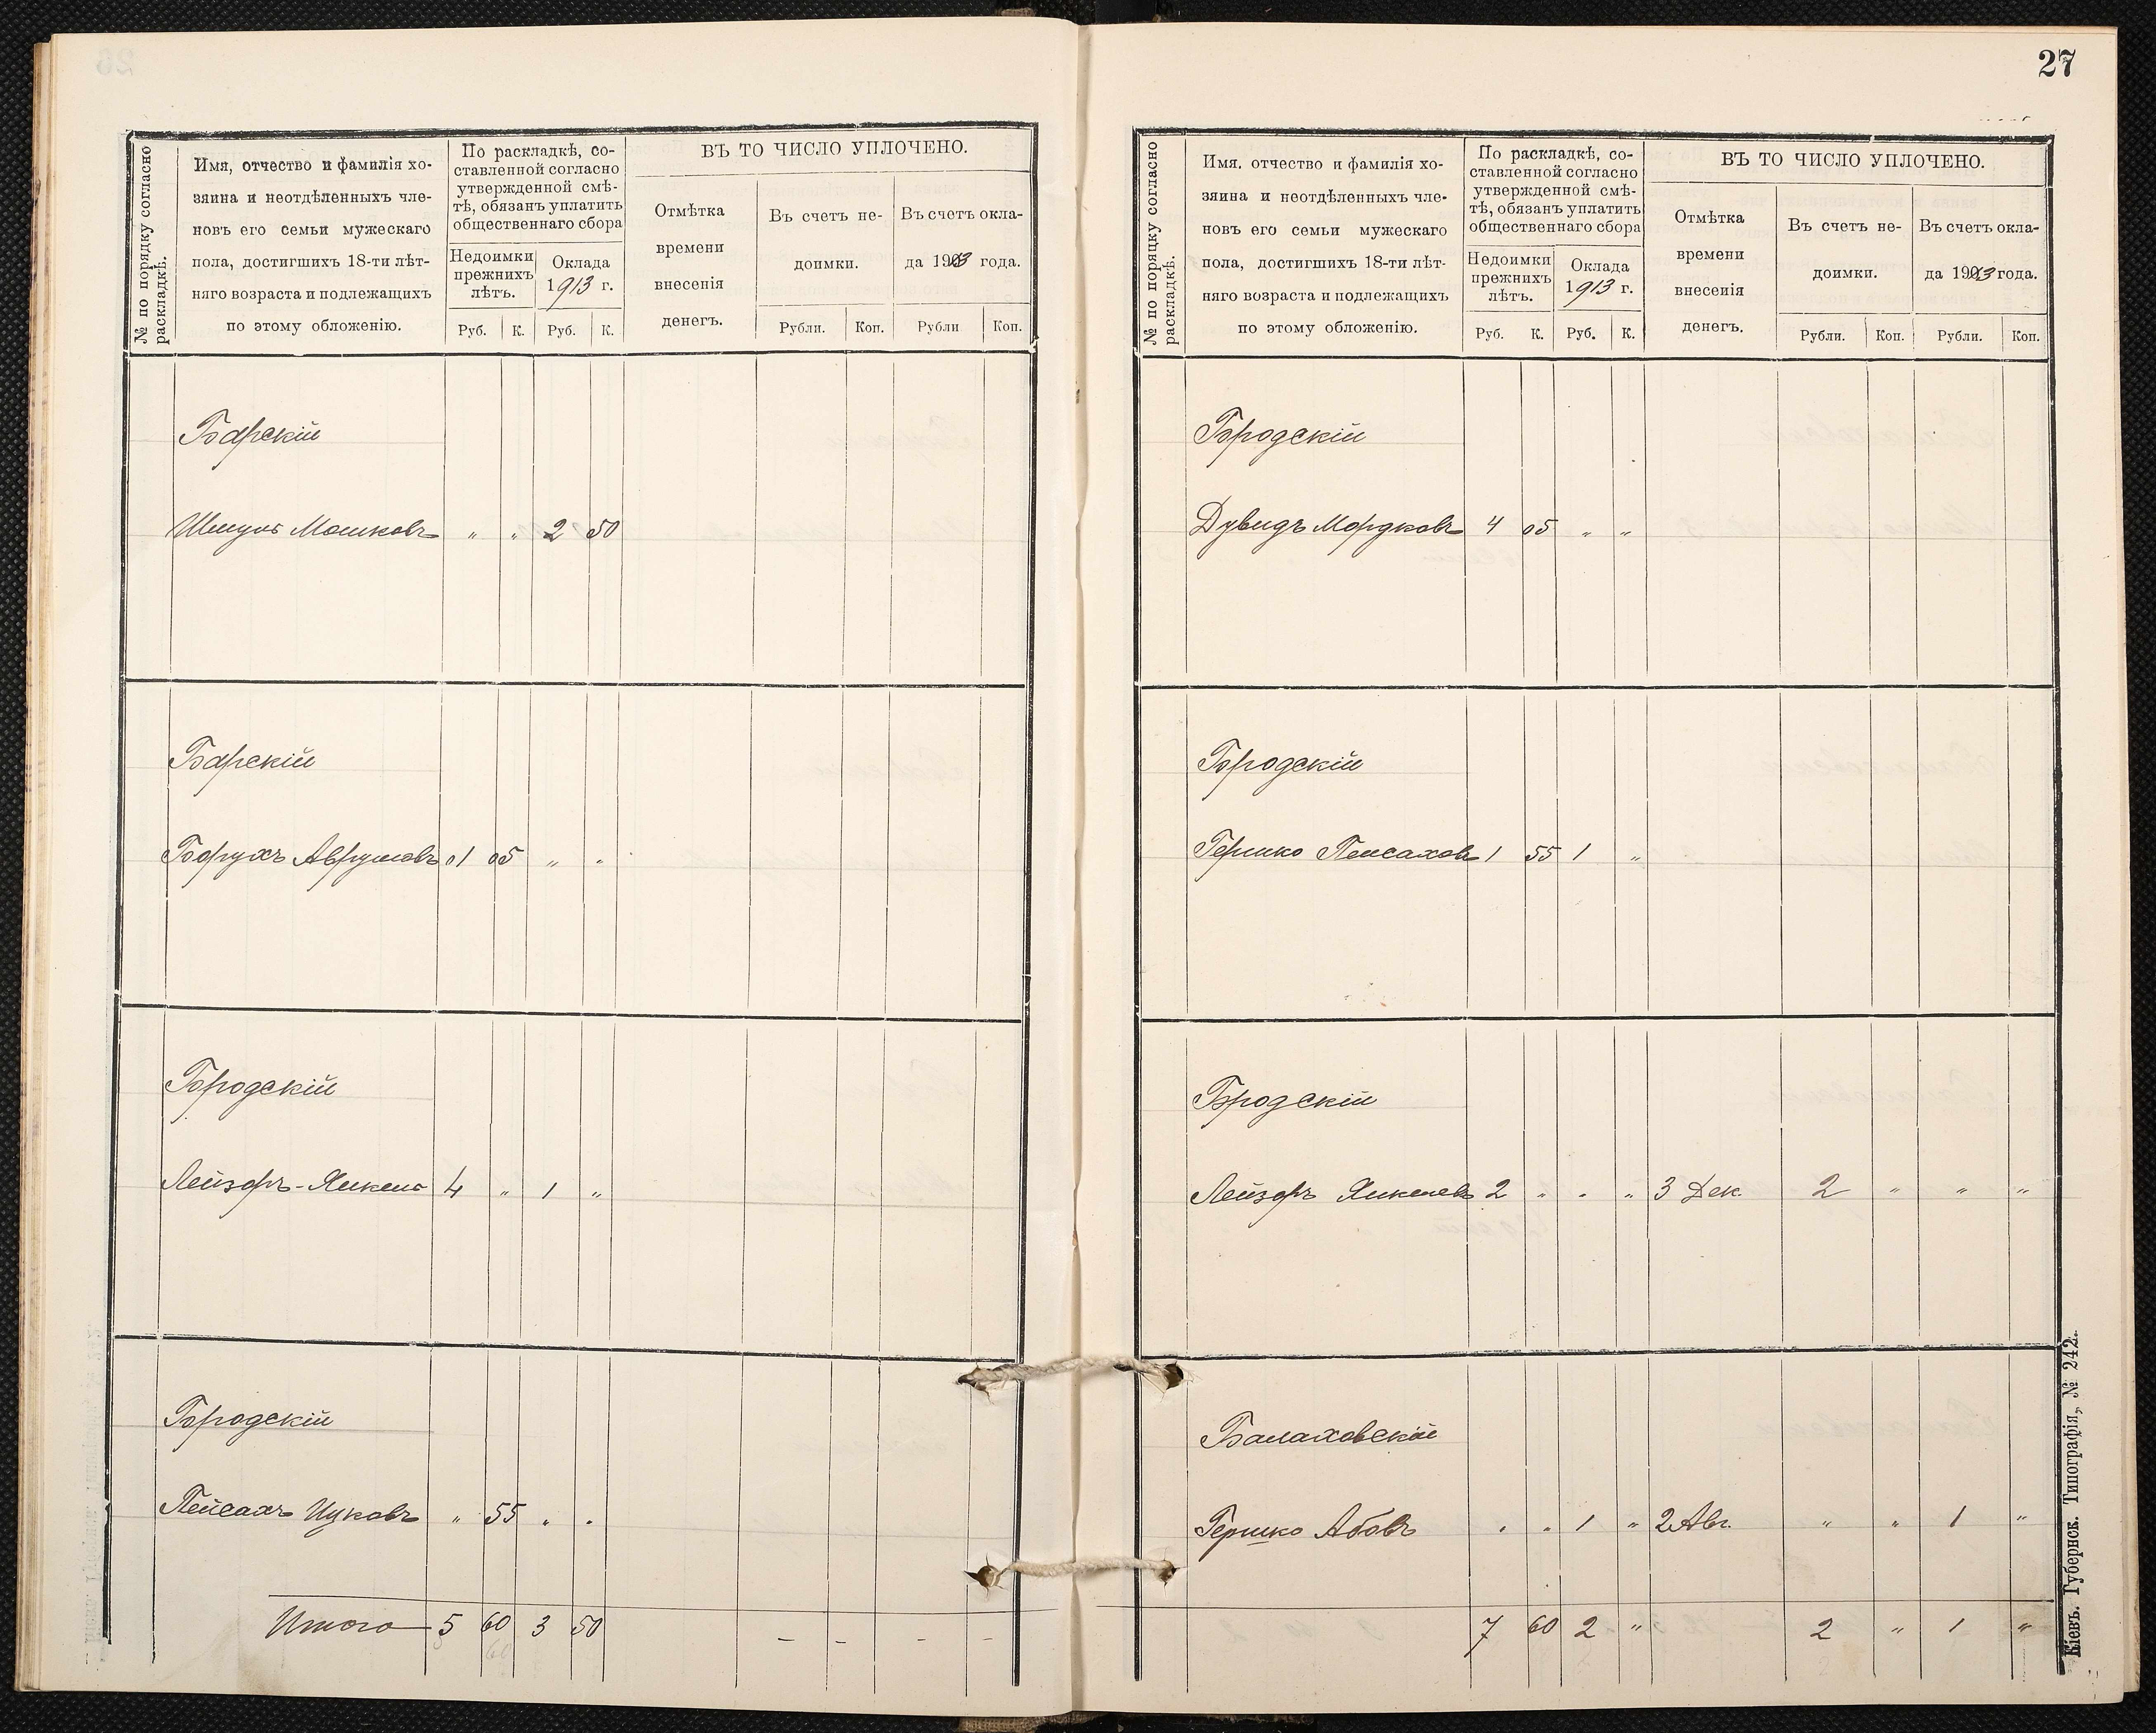 № по порядку согласно
раскладкѣ.
Имя, отчество и фамилія хо-
зяина и неотдѣленныхъ чле-
новъ его семьи мужескаго
пола, достигшихъ 18-ти лѣт-
няго возраста и подлежащихъ
по этому обложенію.
По раскладкѣ, со-
ставленной согласно
утвержденной смѣ-
тѣ, обязанъ уплатить
общественнаго сбора
Недоимки
прежнихъ
лѣтъ.
Оклада
1913 г.
Руб. К. Руб. К.
ВЪ ТО ЧИСЛО УПЛОЧЕНО.
Отмѣтка
времени
внесенія
денегъ.
Въ счетъ не-
доимки.
Въ счетъ окла-
да 1913 года.
Рубли. Коп. Рубли Коп.
Барскій
Шмуль Мошковъ " " 2 50
Барскій
Борухъ Аврумовъ 01 05 " "
Бродскій
Лейзоръ-Янкель 4 " 1 "
Бродскій
Пейсахъ Ицковъ " 55 " "
Итого 5 60 3 50 – – – –
27
№ по порядку согласно
раскладкѣ.
Имя, отчество и фамилія хо-
зяина и неотдѣленныхъ чле-
новъ его семьи мужескаго
пола, достигшихъ 18-ти лѣт-
няго возраста и подлежащихъ
по этому обложенію.
По раскладкѣ, со-
ставленной согласно
утвержденной смѣ-
тѣ, обязанъ уплатить
общественнаго сбора
Недоимки
прежнихъ
лѣтъ.
Оклада
1913 г.
Руб. К. Руб. К.
ВЪ ТО ЧИСЛО УПЛОЧЕНО.
Отмѣтка
времени
внесенія
денегъ.
Въ счетъ не-
доимки.
Въ счетъ окла-
да 1913 года.
Рубли. Коп. Рубли. Коп.
Бродскій
Дувидъ Мордковъ 4 05 " "
Бродскій
Гершко Пейсахов 1 55 1 "
Бродскій
Лейзоръ Янкелевъ 2 " " " 3 Дек. 2 " " "
Балаховскій
Гершко Абовъ " " 1 " 2 Авг. " " 1 "
7 60 2 " 2 " 1 "
Кіевъ. Губернск. Типографія, № 242.